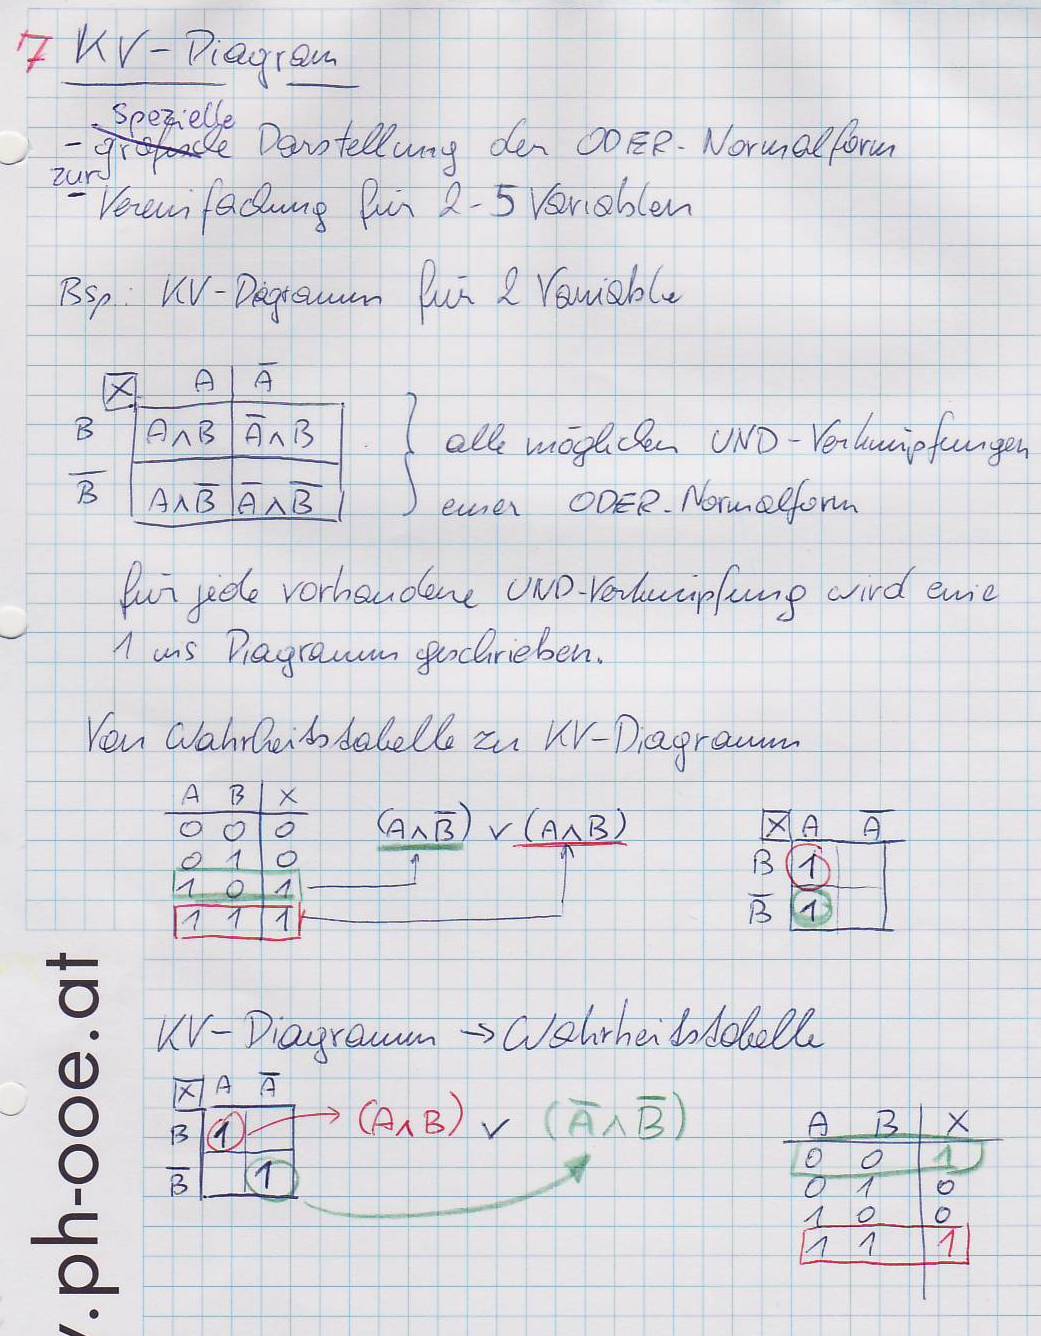 7 KV-Diagram
spezielle
- grafische Darstellung der ODER-Normalform
zur
- Vereinfachung für 2-5 Variablen
Bsp: KV-Diagramm für 2 Variable
X A A̅
B A∧B A̅∧B
B̅ A∧B̅ A̅∧B̅
alle möglichen UND-Verknüpfungen
einer ODER-Normalform
für jede vorhandene UND-Verknüpfung wird eine
1 ins Diagramm geschrieben.
Von Wahrheitstabelle zu KV-Diagramm
A B X
0 0 0
0 1 0
1 0 1
1 1 1
(A∧B̅) ∨ (A∧B)
X A A̅
B 1
B̅ 1
KV-Diagramm → Wahrheitstabelle
X A A̅
B 1
B̅ 1
(A∧B) ∨ (A̅∧B̅)
A B X
0 0 1
0 1 0
1 0 0
1 1 1
.ph-ooe.at